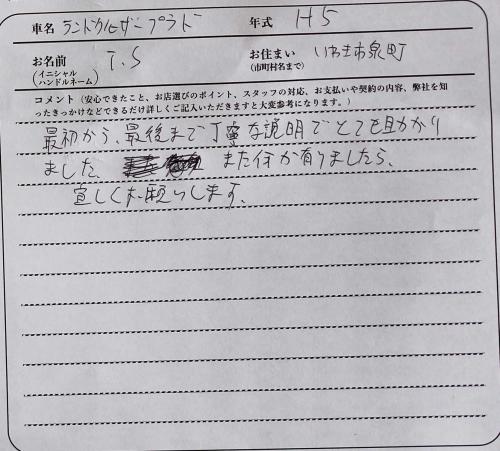 車名 ランドクルーザープラド 年式 H5
お名前 T.S お住まい いわき市泉町
(イニシャル ハンドルネーム) (市町村名まで)
コメント(安心できたこと、お店選びのポイント、スタッフの対応、お支払いや契約の内容、弊社を知
ったきっかけなどできるだけ詳しくご記入いただきますと大変参考になります。)
最初から、最後まで丁寧な説明でとても助かり
ました、 また何か有りましたら、
宜しくお願いします。